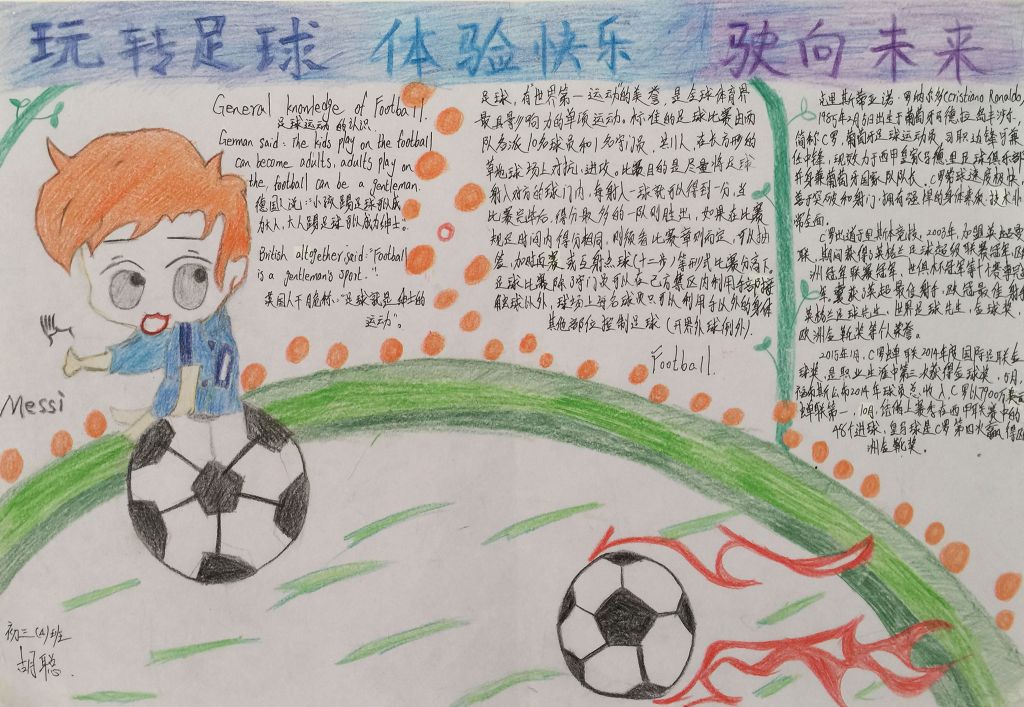 玩转足球 体验快乐 驶向未来
General knowledge of Football.
足球运动的认识
German said: the kids play on the football
can become adults, adults play on
the, football can be a gentleman.
德国人说:"小孩踢足球可以成
为大人,大人踢足球可以成为绅士。"
British altogether, said: "Football
is a gentleman's sport.".
英国人干脆称:"足球就是绅士的
运动"。
Messi
初三(4)班
胡聪
足球,有世界第一运动的美誉,是全球体育界
最具影响力的单项运动。标准的足球比赛由两
队各派10名球员和1名守门员,共11人,在长方形的
草地球场上对抗、进攻。比赛目的是尽量将足球
射入对方的球门内,每射入一球就可以得到一分,当
比赛完毕后,得分最多的一队则胜出,如果在比赛
规定时间内得分相同,则须看比赛章则而定,可以抽
签、加时再赛或互射点球(十二码)等形式比赛分高下。
足球比赛除了守门员可以在己方禁区内利用手部接
触球以外,球场上每名球员只可以利用手以外的身体
其他部位控制足球(开界外球例外)。
Football.
克里斯蒂亚诺·罗纳尔多(Cristiano Ronaldo)
1985年2月5日出生于葡萄牙马德拉岛丰沙尔,
简称C罗,葡萄牙足球运动员,司职边锋可兼
任中锋,现效力于西甲皇家马德里足球俱乐部
并身兼葡萄牙国家队队长。C罗带球速度极快,
善于突破和射门,拥有强悍的身体素质,技术非
常全面。
C罗出道于里斯本竞技,2003年,加盟英超曼
联,期间获得3英格兰足球超级联赛冠军,
年,囊获3英超最佳射手,
英格兰足球先生,世界足球先生,金球奖,
欧洲金靴奖等个人荣誉。
2015年1月,C罗蝉联2014年度国际足联金
球奖,是职业生涯中第三次获得金球奖,
蝉联第一,10月,
48个进球,皇马球星C罗第四次赢得欧
洲金靴奖。